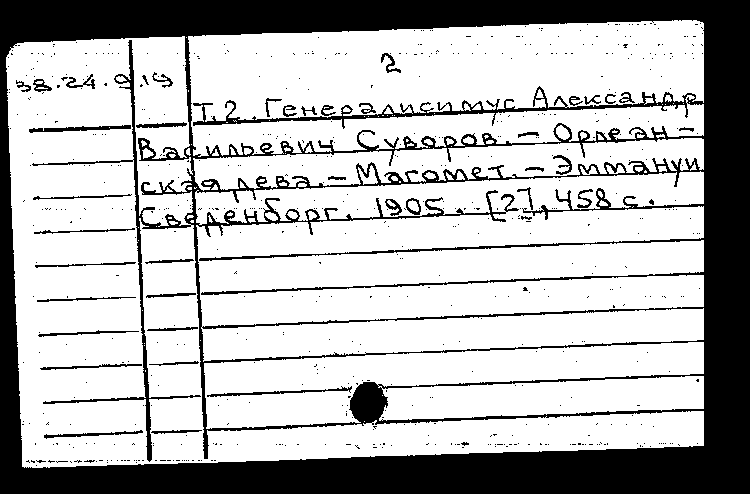 2
38.24.9.19
Т.2. Генералисимус Александр
Васильевич Суворов. – Орлеан –
ская дева. – Магомет. – Эммануи
Сведенборг. 1905. [2], 458 с.